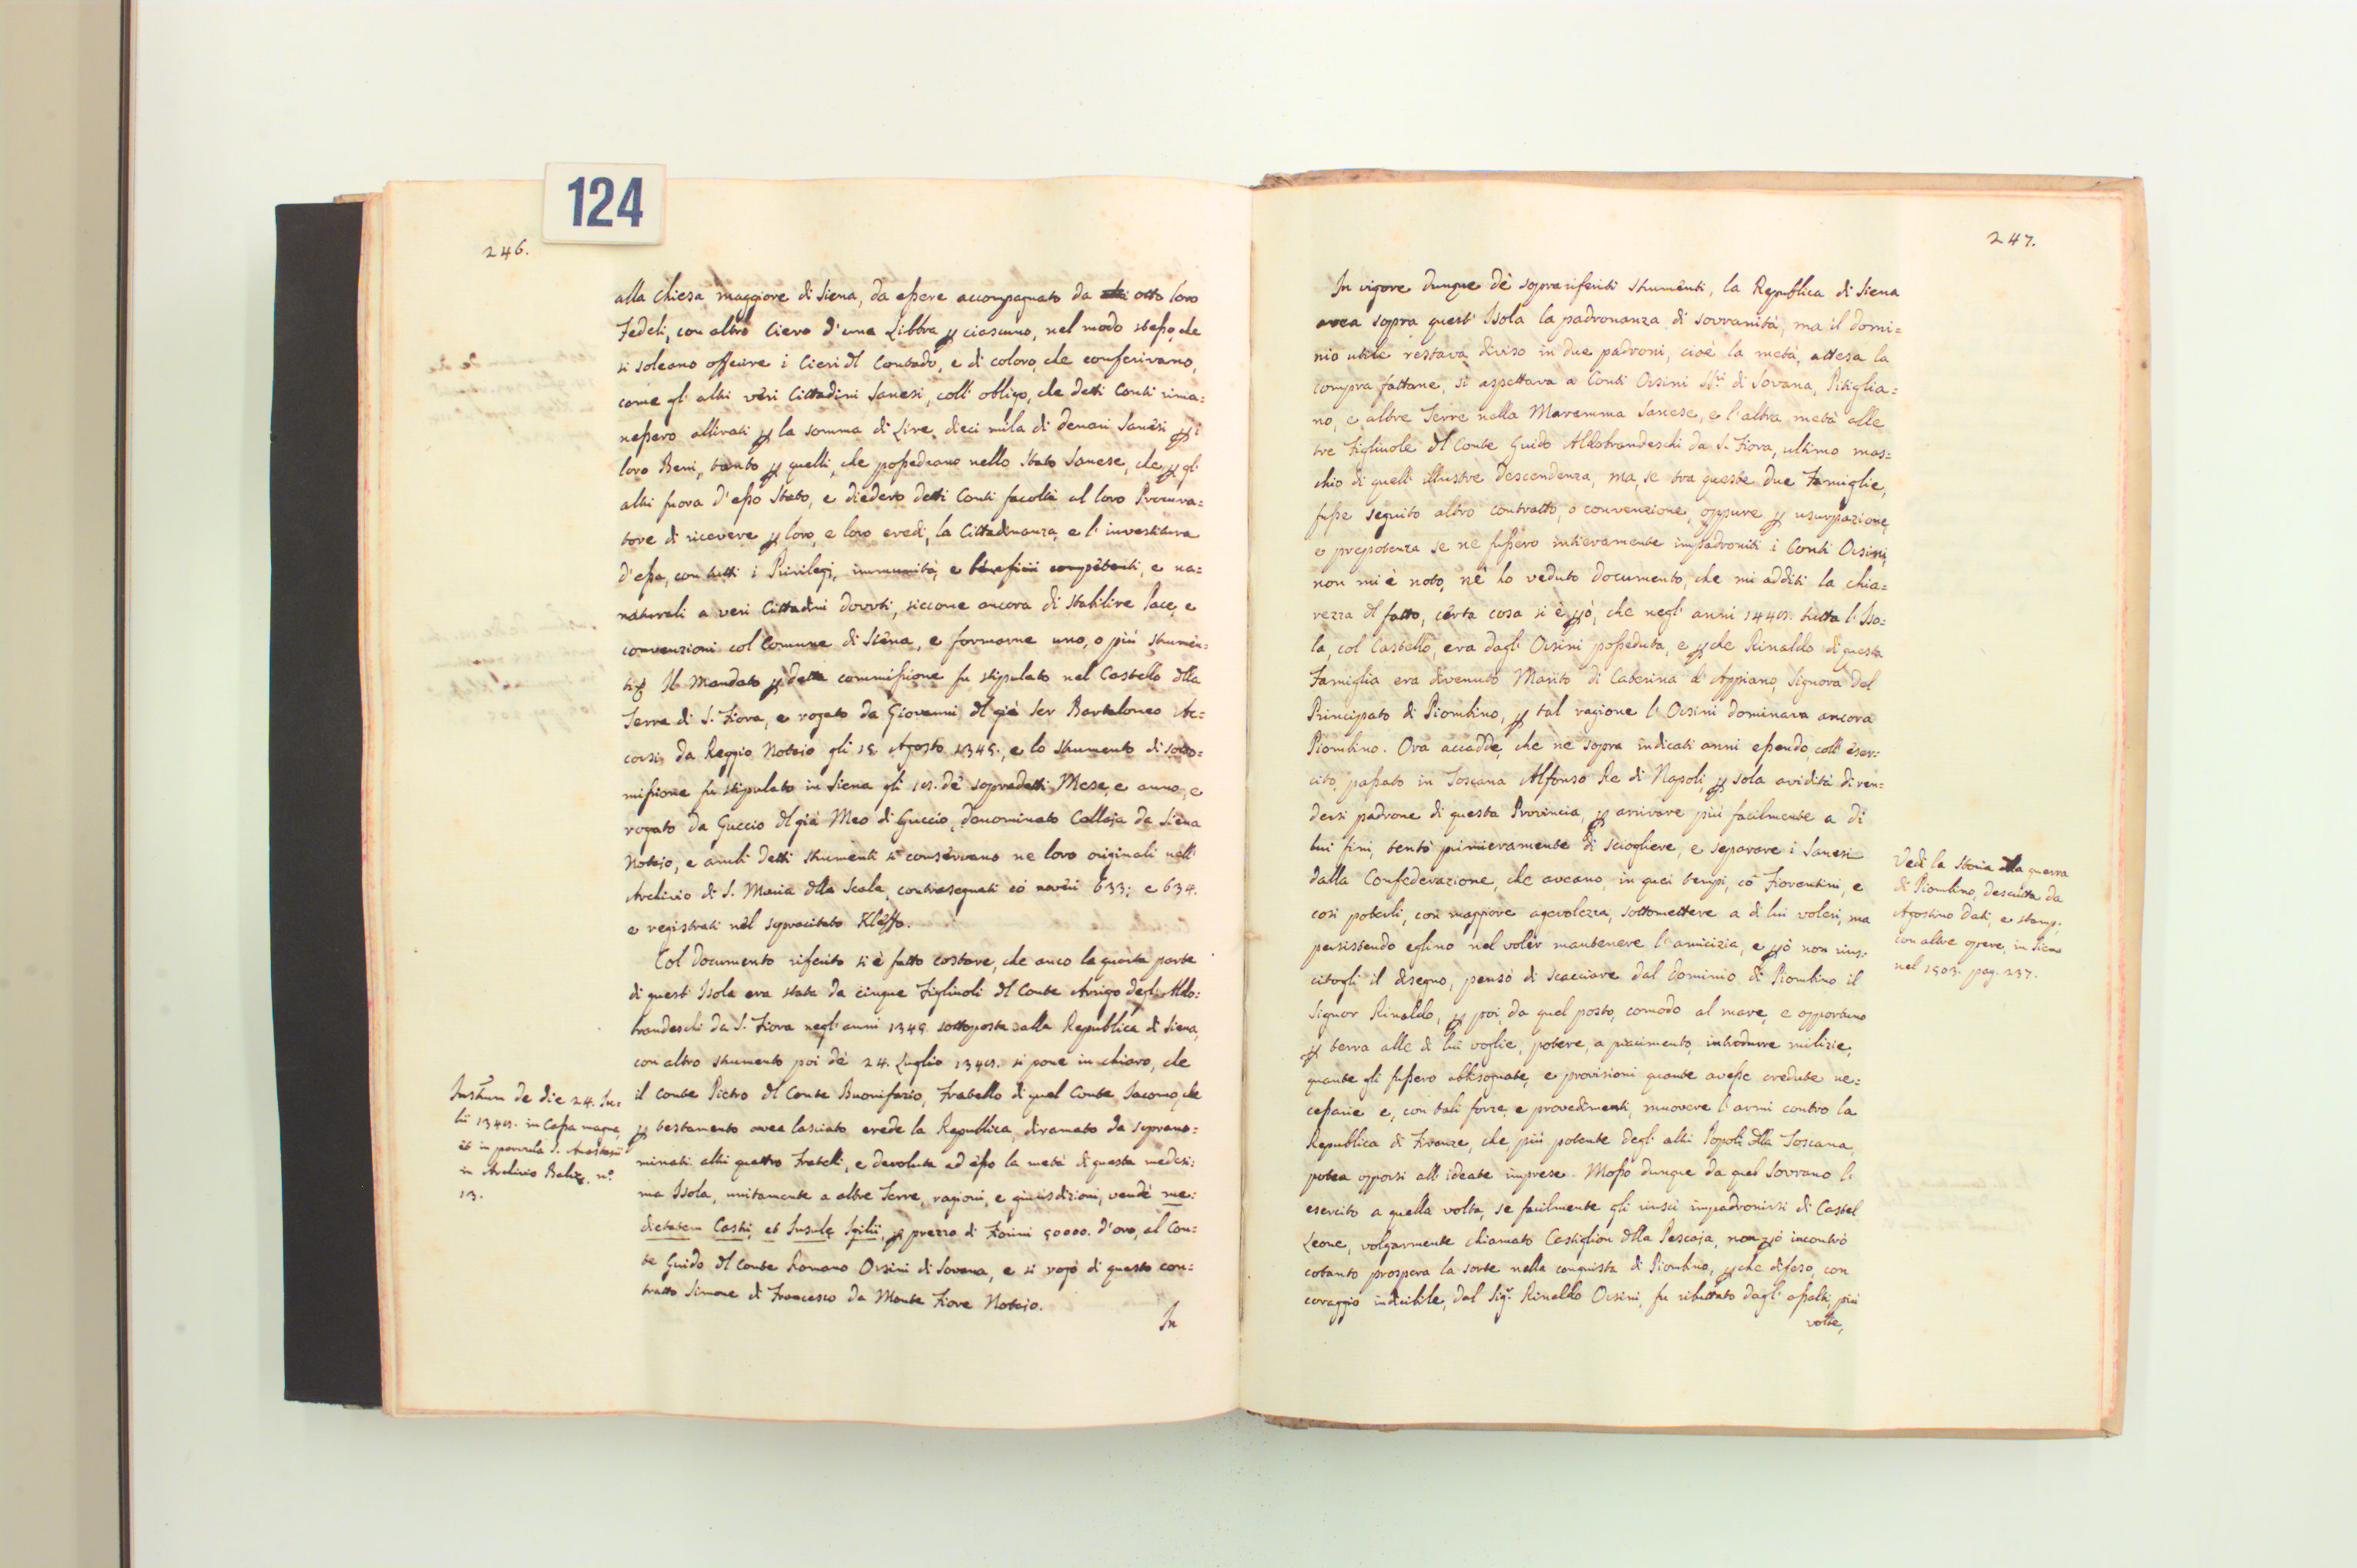 124
246.
alla Chiesa maggiore di Siena, da essere accompagnato da otto loro
Fedeli, con altro Ciero d'una Libbra p ciascuno, nel modo stesso, che
si soleano offerire i Cieri dl Contado, e di coloro, che conferivano,
come gl' altri veri Cittadini Sanesi, coll' obligo, che detti Conti rima=
nessero allirati p la somma di Lire dieci mila di denari Sanesi p i
loro Beni, tanto p quelli, che possedeano nello Stato Sanese, che p gl'
altri fuora d'esso Stato, e diedero detti Conti facoltà al loro Procura=
tore di ricevere p loro, e loro eredi, la Cittadinanza, e l' investitura
d'essa, con tutti i Privilegj, immunità, e beneficii competenti, e na=
naturali a veri Cittadini dovuti, siccome ancora di stabilire Pace, e
convenzioni col Comune di Siena, e formarne uno, o più strumen=
ti Il Mandato p detta commissione fu stipulato nel Castello dlla
Terra di S. Fiora, e rogato da Giovanni dl già Ser Bartolomeo Ac=
corsi, da Reggio Notaio gli 15. Agosto 1345., e lo strumento di sotto=
missione fu stipulato in Siena gli 19. de' sopradetti Mese, e anno, e
rogato da Guccio dl già Meo di Guccio, denominato Collaja da Siena
Notaio, e ambi detti strumenti si conservano ne loro originali nell'
Archivio di S. Maria dlla Scala, contrasegnati co' numeri 633: e 634.
e registrati nel sopracitato Kleffo.
Col Documento riferito si è fatto costare, che anco la quarta parte
di quest' Isola era stata da cinque Figliuoli dl Conte Arrigo degli Aldo:
brandeschi da S. Fiora negl' anni 1345. sottoposta alla Republica di Siena,
con altro strumento poi de' 24. Luglio 1349. si pone in chiaro, che
il Conte Pietro dl Conte Buonifazio, Fratello di quel Conte Iacomo, che
p testamento avea lasciato erede la Republica, diramato da soprano=
minati altri quattro Fratelli, e devoluta ad esso la metà di questa medesi:
ma Isola, unitamente a altre Terre, ragioni, e giurisdizioni, vendè me:
dietatem Castri, et Insule Igilii, p prezzo di Fiorini 50000. d'oro, al Con=
te Guido dl Conte Romano Orsini di Sovana, e si rogò di questo con=
tratto Simone di Francesco da Monte Fiore Notaio.
In
Instrum de die 24. Iu=
lii 1349. in Capsa magna,
et in parvula S. Anastasii
in Archivio Balie. n.°
13.
247.
In vigore dunque de' sopra riferiti strumenti, la Republica di Siena
avea sopra quest' Isola la padronanza di sovranità, ma il domi=
nio utile restava diviso in due padroni, cioè la metà, attesa la
compra fattane, si aspettava a Conti Orsini SS.ri di Sovana, Pitiglia=
no, e altre Terre nella Maremma Sanese, e l'altra metà alle
tre Figliuole dl Conte Guido Aldobrandeschi da S. Fiora, ultimo mas=
chio di quell' illustre Descendenza, ma, se tra queste due Famiglie,
fusse seguito altro contratto, o convenzione, oppure p usurpazione,
e prepotenza se ne fussero intieramente impadroniti i Conti Orsini,
non mi è noto, nè ho veduto documento, che mi additi la chia=
rezza dl fatto, certa cosa si è pò, che negl' anni 1449. tutta l' Iso=
la, col Castello, era dagl' Orsini posseduta, e p che Rinaldo di questa
Famiglia era divenuto Marito di Caterina d' Appiano, Signora del
Principato di Piombino, p tal ragione l' Orsini dominava ancora
Piombino. Ora accadde, che ne sopra indicati anni essendo, coll' eser=
cito, passato in Toscana Alfonso Re di Napoli, p sola avidità di ren=
dersi padrone di questa Provincia, p arrivare più facilmente a di
lui fini, tentò primieramente di sciogliere, e separare i Sanesi
dalla Confederazione, che aveano, in quei tempi, co' Fiorentini, e
così poterli, con maggiore agevolezza, sottomettere a di lui voleri, ma
persistendo eglino nel voler mantenere l' amicizia, e pò non rius=
citogli il disegno, pensò di scacciare dal dominio di Piombino il
Signor Rinaldo, p poi, da quel posto, comodo al mare, e opportuno
p terra alle di lui voglie, potere, a piacimento, introdurre milizie,
quante gli fussero abbisognate, e provisioni quante avesse credute ne=
cessarie e, con tali forze, e provedimenti, muovere l' armi contro la
Republica di Firenze, che, più potente degl' altri Popoli dlla Toscana,
potea opporsi all' ideate imprese. Mosso dunque da quel Sovrano l'
esercito a quella volta, se facilmente gli riuscì impadronirsi di Castel
Leone, volgarmente chiamato Castiglion dlla Pescaja, non pò incontrò
cotanto prospera la sorte nella conquista di Piombino, p che difeso, con
coraggio indicibile, dal Sig.r Rinaldo Orsini, fu ributtato dagl' assalti, più
volte,
Vedi la Storia dlla guerra
di Piombino, descritta da
Agostino Dati, e stamp.
con altre opere, in Siena
nel 1503. pag. 237.